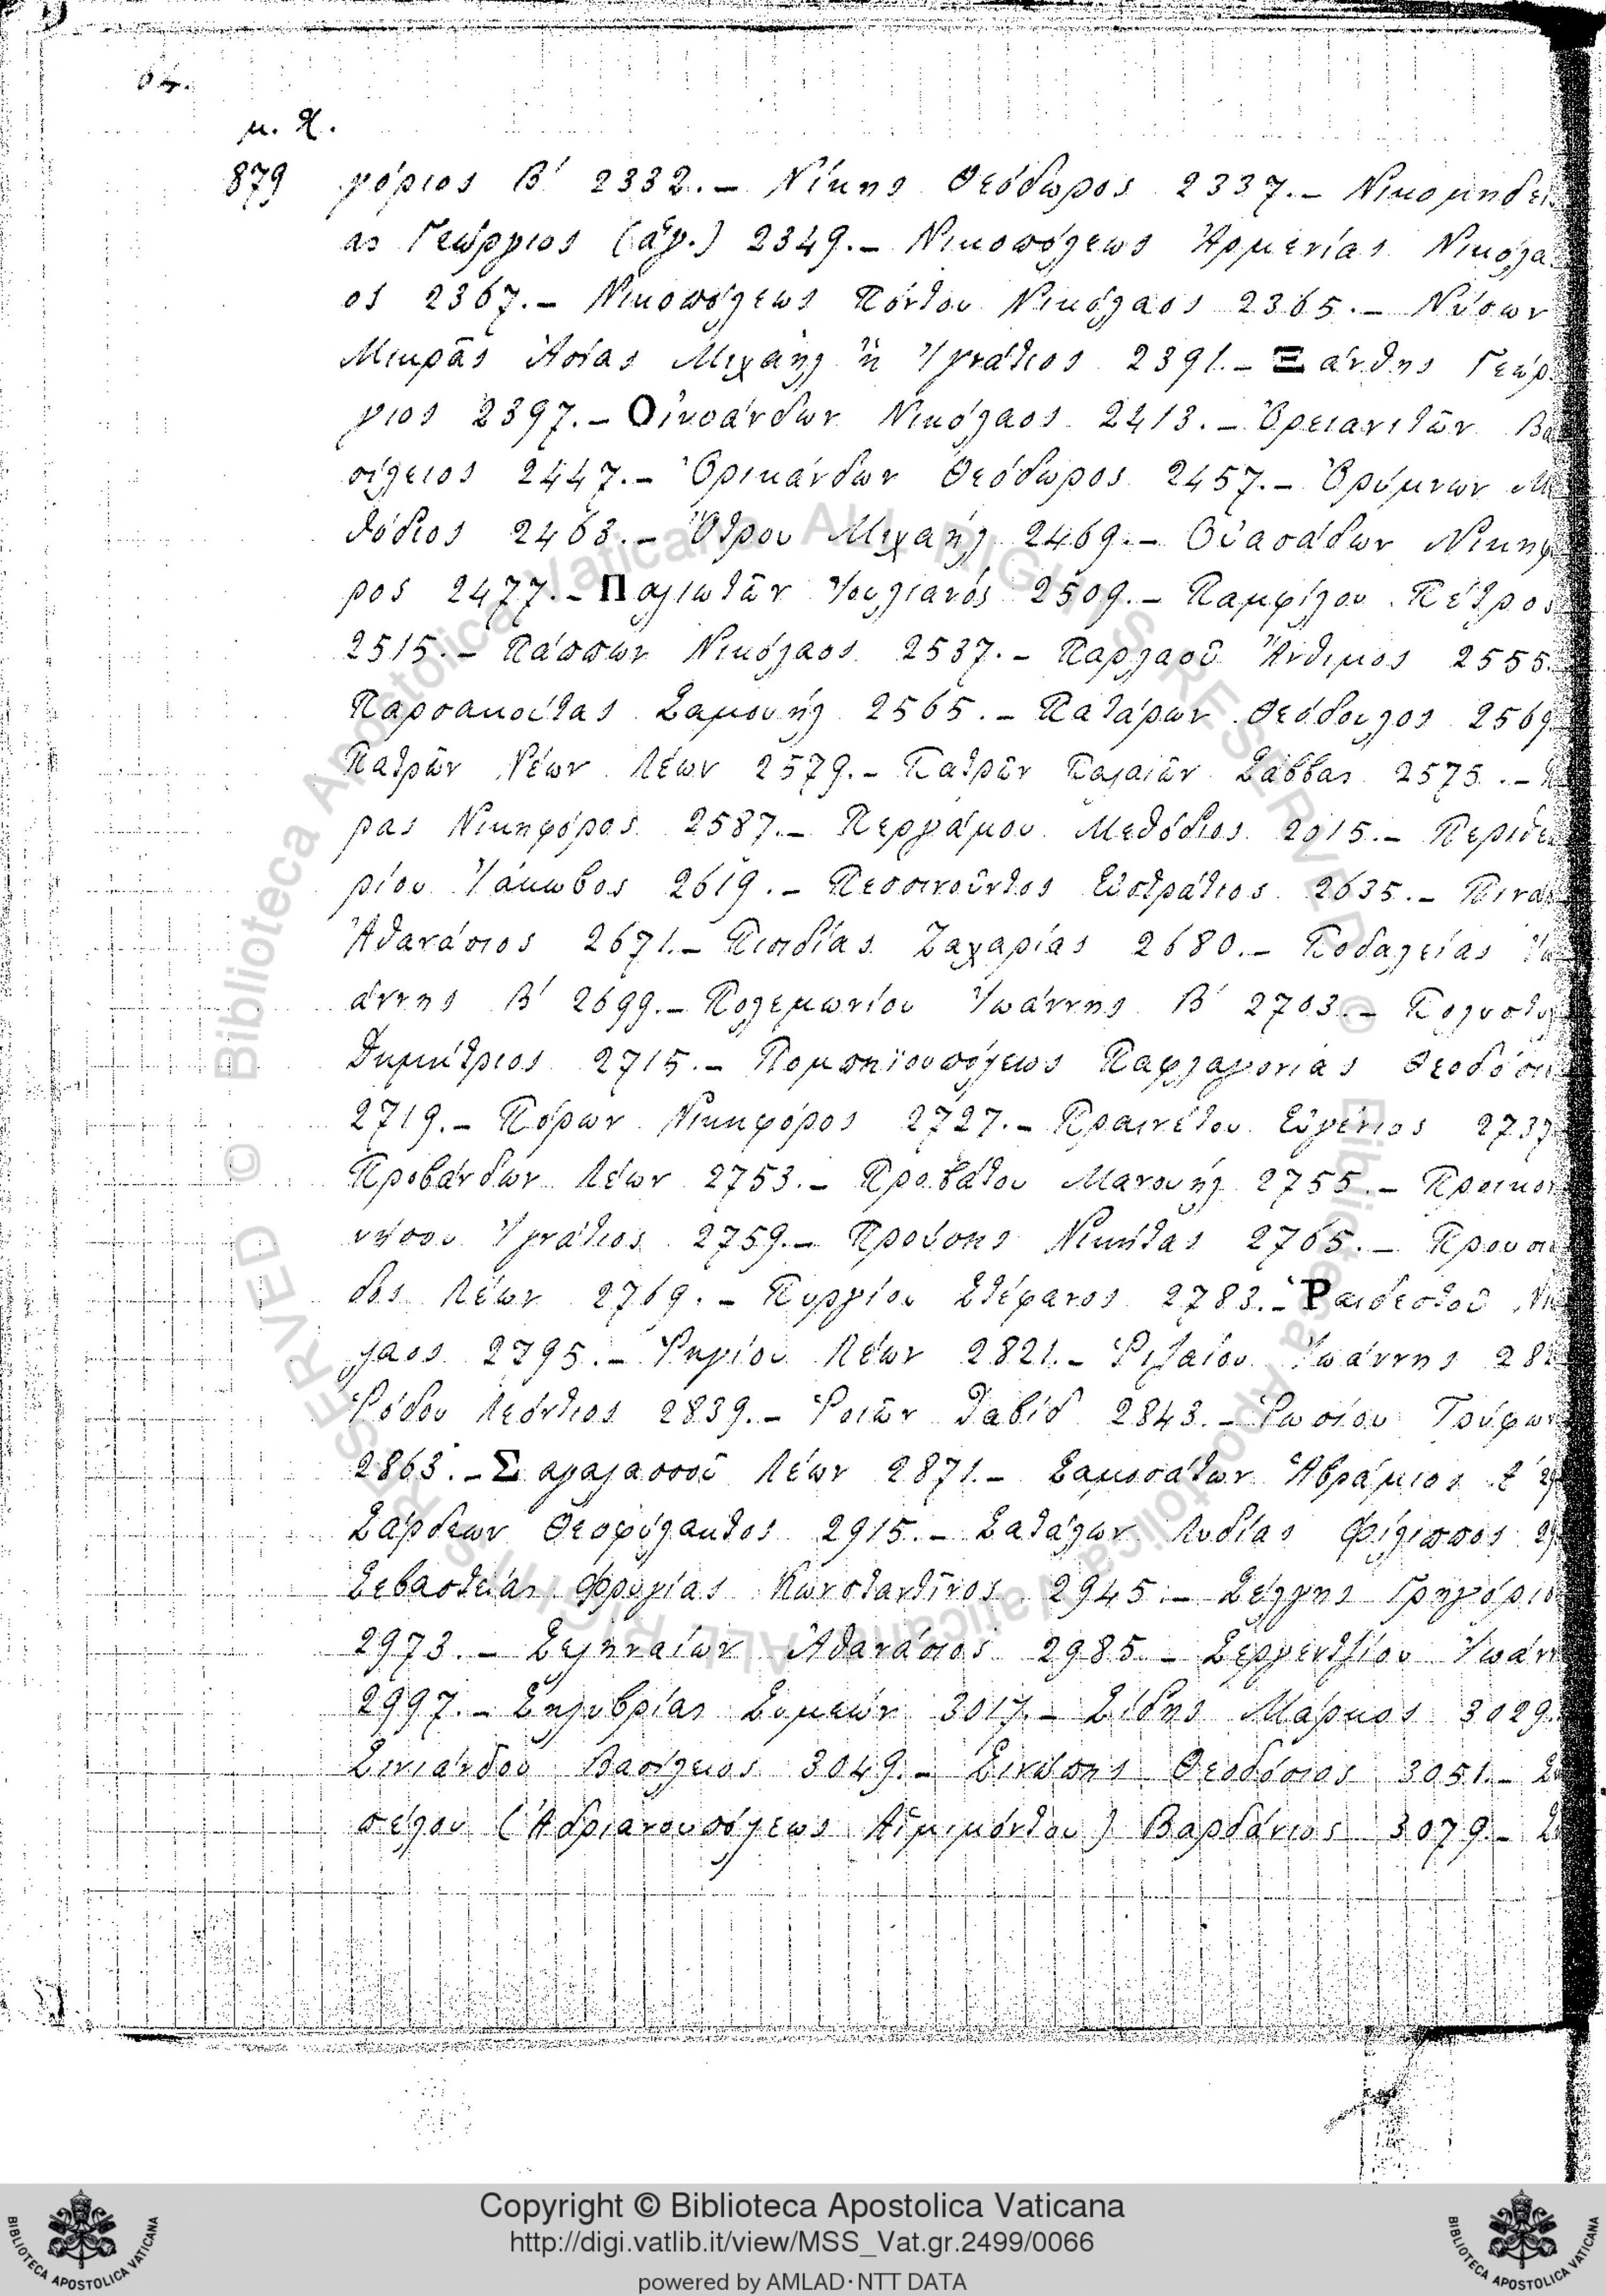 64.
μ. Χ.
879 γόριος Β′ 2332.— Νίκης Θεόδωρος 2337.— Νικομηδεί
ας Γεώργιος (ἅγ.) 2349.— Νικοπόλεως Ἀρμενίας Νικόλα
ος 2367.— Νικοπόλεως Πόντου Νικόλαος 2365.— Νύσων
Μικρᾶς Ἀσίας Μιχαὴλ ἢ Ἰγνάτιος 2391.— Ξάνθης Γεώρ
γιος 2397.— Οἰνοάνδων Νικόλαος 2413.— Ὀρειανιτῶν Βα
σίλειος 2447.— Ὀρικάνδων Θεόδωρος 2457.— Ὀρύμνων Με
θόδιος 2463.— Ὄτρου Μιχαήλ 2469.— Οὐασάδων Νικηφ
ρος 2477.— Παλιωτῶν Ἰουλιανός 2509.— Παμφίλου Πέτρος
2515.— Πάππων Νικόλαος 2537.— Παρλαοῦ Ἄνθιμος 2555.
Παρσακούτας Σαμουήλ 2565.— Πατάρων Θεόδουλος 2569
Πατρῶν Νέων Λέων 2579.— Πατρῶν Παλαιῶν Σάββας 2575.—
ρας Νικηφόρος 2587.— Περγάμου Μεθόδιος 2615.— Περιθε
ρίου Ἰάκωβος 2619.— Πεσσινοῦντος Εὐστράτιος 2635.— Πινά
Ἀθανάσιος 2671.— Πισιδίας Ζαχαρίας 2680.— Ποδαλείας Ἰω
άννης Β′ 2699.— Πολεμωνίου Ἰωάννης Β′ 2703.— Πολυστύ
Δημήτριος 2715.— Πομπηϊουπόλεως Παφλαγονίας Θεοδόσι
2719.— Πόρων Νικηφόρος 2727.— Πραινέτου Εὐγένιος 2737
Προβάνδων Λέων 2753.— Προβάτου Μανουήλ 2755.— Προικον
νήσου Ἰγνάτιος 2759.— Προύσης Νικήτας 2765.— Προυσι
δος Λέων 2769.— Πυργίου Στέφανος 2783.— Ῥαιδεστοῦ Νικ
λαος 2795.— Ῥηγίου Λέων 2821.— Ῥιζαίου Ἰωάννης 282
Ῥόδου Λεόντιος 2839.— Ῥοιῶν Δαβίδ 2843.— Ῥωσίου Τρύφων
2863.— Σαγαλασσοῦ Λέων 2871.— Σαμοσάτων Ἀβράμιος
Σάρδεων Θεοφύλακτος 2915.— Σατάλων Λυδίας Φίλιππος 29
Σεβαστείας Φρυγίας Κωνσταντῖνος 2945.— Σέλγης Γρηγόριο
2973.— Σεληναίων Ἀθανάσιος 2985.— Σεργεντζίου Ἰωάνν
2997.— Σηλυβρίας Συμεών 3017.— Σίδης Μάρκος 3029.
Σινιάνδου Βασίλειος 3049.— Σινώπης Θεοδόσιος 3051.— Σ
πέλου (Ἀδριανουπόλεως Αἱμιμόντου) Βαρδάνιος 3079.— Σ
© Biblioteca Apostolica Vaticana ALL RIGHTS RESERVED
© Biblioteca Apostolica Vaticana ALL RIGHTS RESERVED
Copyright © Biblioteca Apostolica Vaticana
http://digi.vatlib.it/view/MSS_Vat.gr.2499/0066
powered by AMLAD·NTT DATA
BIBLIOTECA APOSTOLICA VATICANA
BIBLIOTECA APOSTOLICA VATICANA